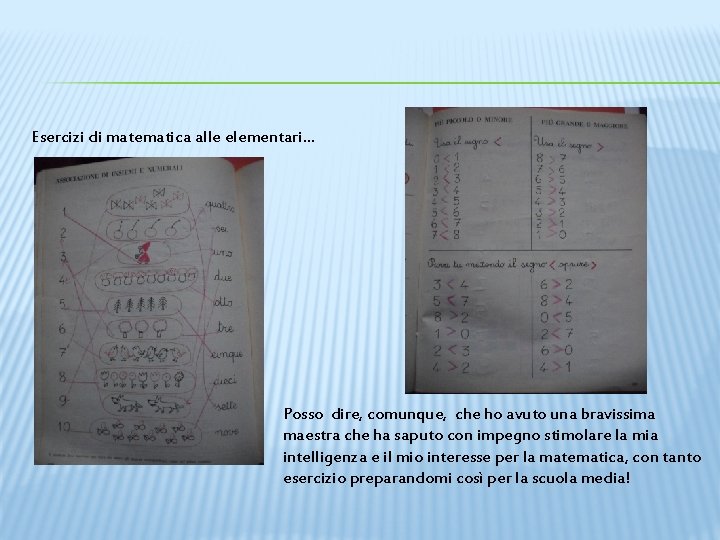 Esercizi di matematica alle elementari...
ASSOCIAZIONE DI INSIEMI E NUMERALI
1 quattro
2 sei
3 uno
4 due
5 otto
6 tre
7 cinque
8 dieci
9 sette
10 nove
PIÙ PICCOLO O MINORE
Usa il segno <
0 < 1
1 < 2
2 < 3
3 < 4
4 < 5
5 < 6
6 < 7
7 < 8
PIÙ GRANDE O MAGGIORE
Usa il segno >
8 > 7
7 > 6
6 > 5
5 > 4
4 > 3
3 > 2
2 > 1
1 > 0
Prova tu mettendo il segno < oppure >
3 < 4 6 > 2
5 < 7 8 > 4
8 > 2 0 < 5
1 > 0 2 < 7
2 < 3 6 > 0
4 > 2 4 > 1
Posso dire, comunque, che ho avuto una bravissima
maestra che ha saputo con impegno stimolare la mia
intelligenza e il mio interesse per la matematica, con tanto
esercizio preparandomi così per la scuola media!